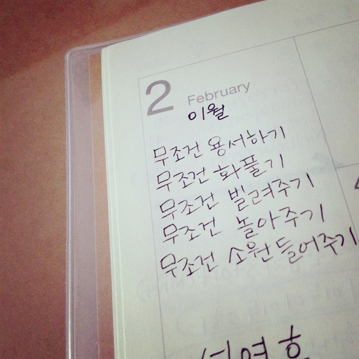 2
February
이월
무조건 용서하기
무조건 화풀기
무조건 빌려주기
무조건 놀아주기
무조건 소원들어주기